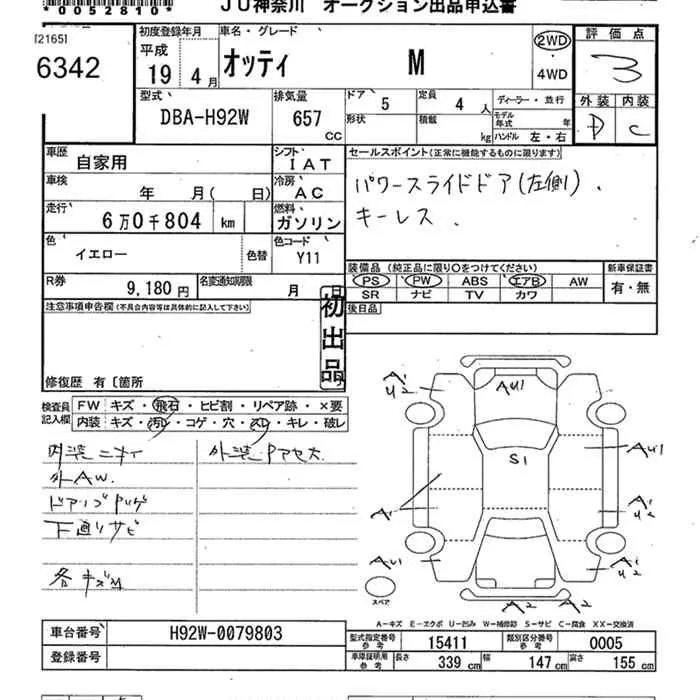 *0052810*
JU神奈川 オークション出品申込書
[2165]
6342
初度登録年月
平成
19 4月
車名・グレード
オッティ M
2WD
・
4WD
評価点
3
型式
DBA-H92W
排気量
657
CC
ドア
5
定員
4 人
形状
積載
kg
ディーラー・並行
モデル
年式
年
ハンドル 左・右
外装 内装
D C
車歴
自家用
シフト
IAT
車検
年 月( 日)
冷房
AC
走行
6万0千804 km
燃料
ガソリン
色
イエロー
色替
色コード
Y11
セールスポイント(正常に機能するものに限ります)
パワースライドドア(左側).
キーレス.
R券
9,180 円
名変通知期限
月 日
装備品(純正品に限り○をつけてください)
PS PW ABS エアB AW
SR ナビ TV カワ
新車保証書
有・無
後日品
注意事項申告欄(不具合内容等は具体的に記入して下さい)
初出品
修復歴 有〔箇所
検査員
記入欄
FW キズ・飛石・ヒビ割・リペア跡・×要
内装 キズ・汚レ・コゲ・穴・スレ・キレ・破レ
内装ニオイ
外AW.
下廻りサビ
各キズ
AU1
S1
A
AU1
A2
A2
スペア
A-キズ E-エクボ U-凹み W-補修跡 S-サビ C-腐食 XX-交換済
車台番号
H92W-0079803
登録番号
型式指定番号
参考
15411
類別区分番号
参考
0005
車庫証明用
参考
長さ 339 cm
幅 147 cm
高さ 155 cm